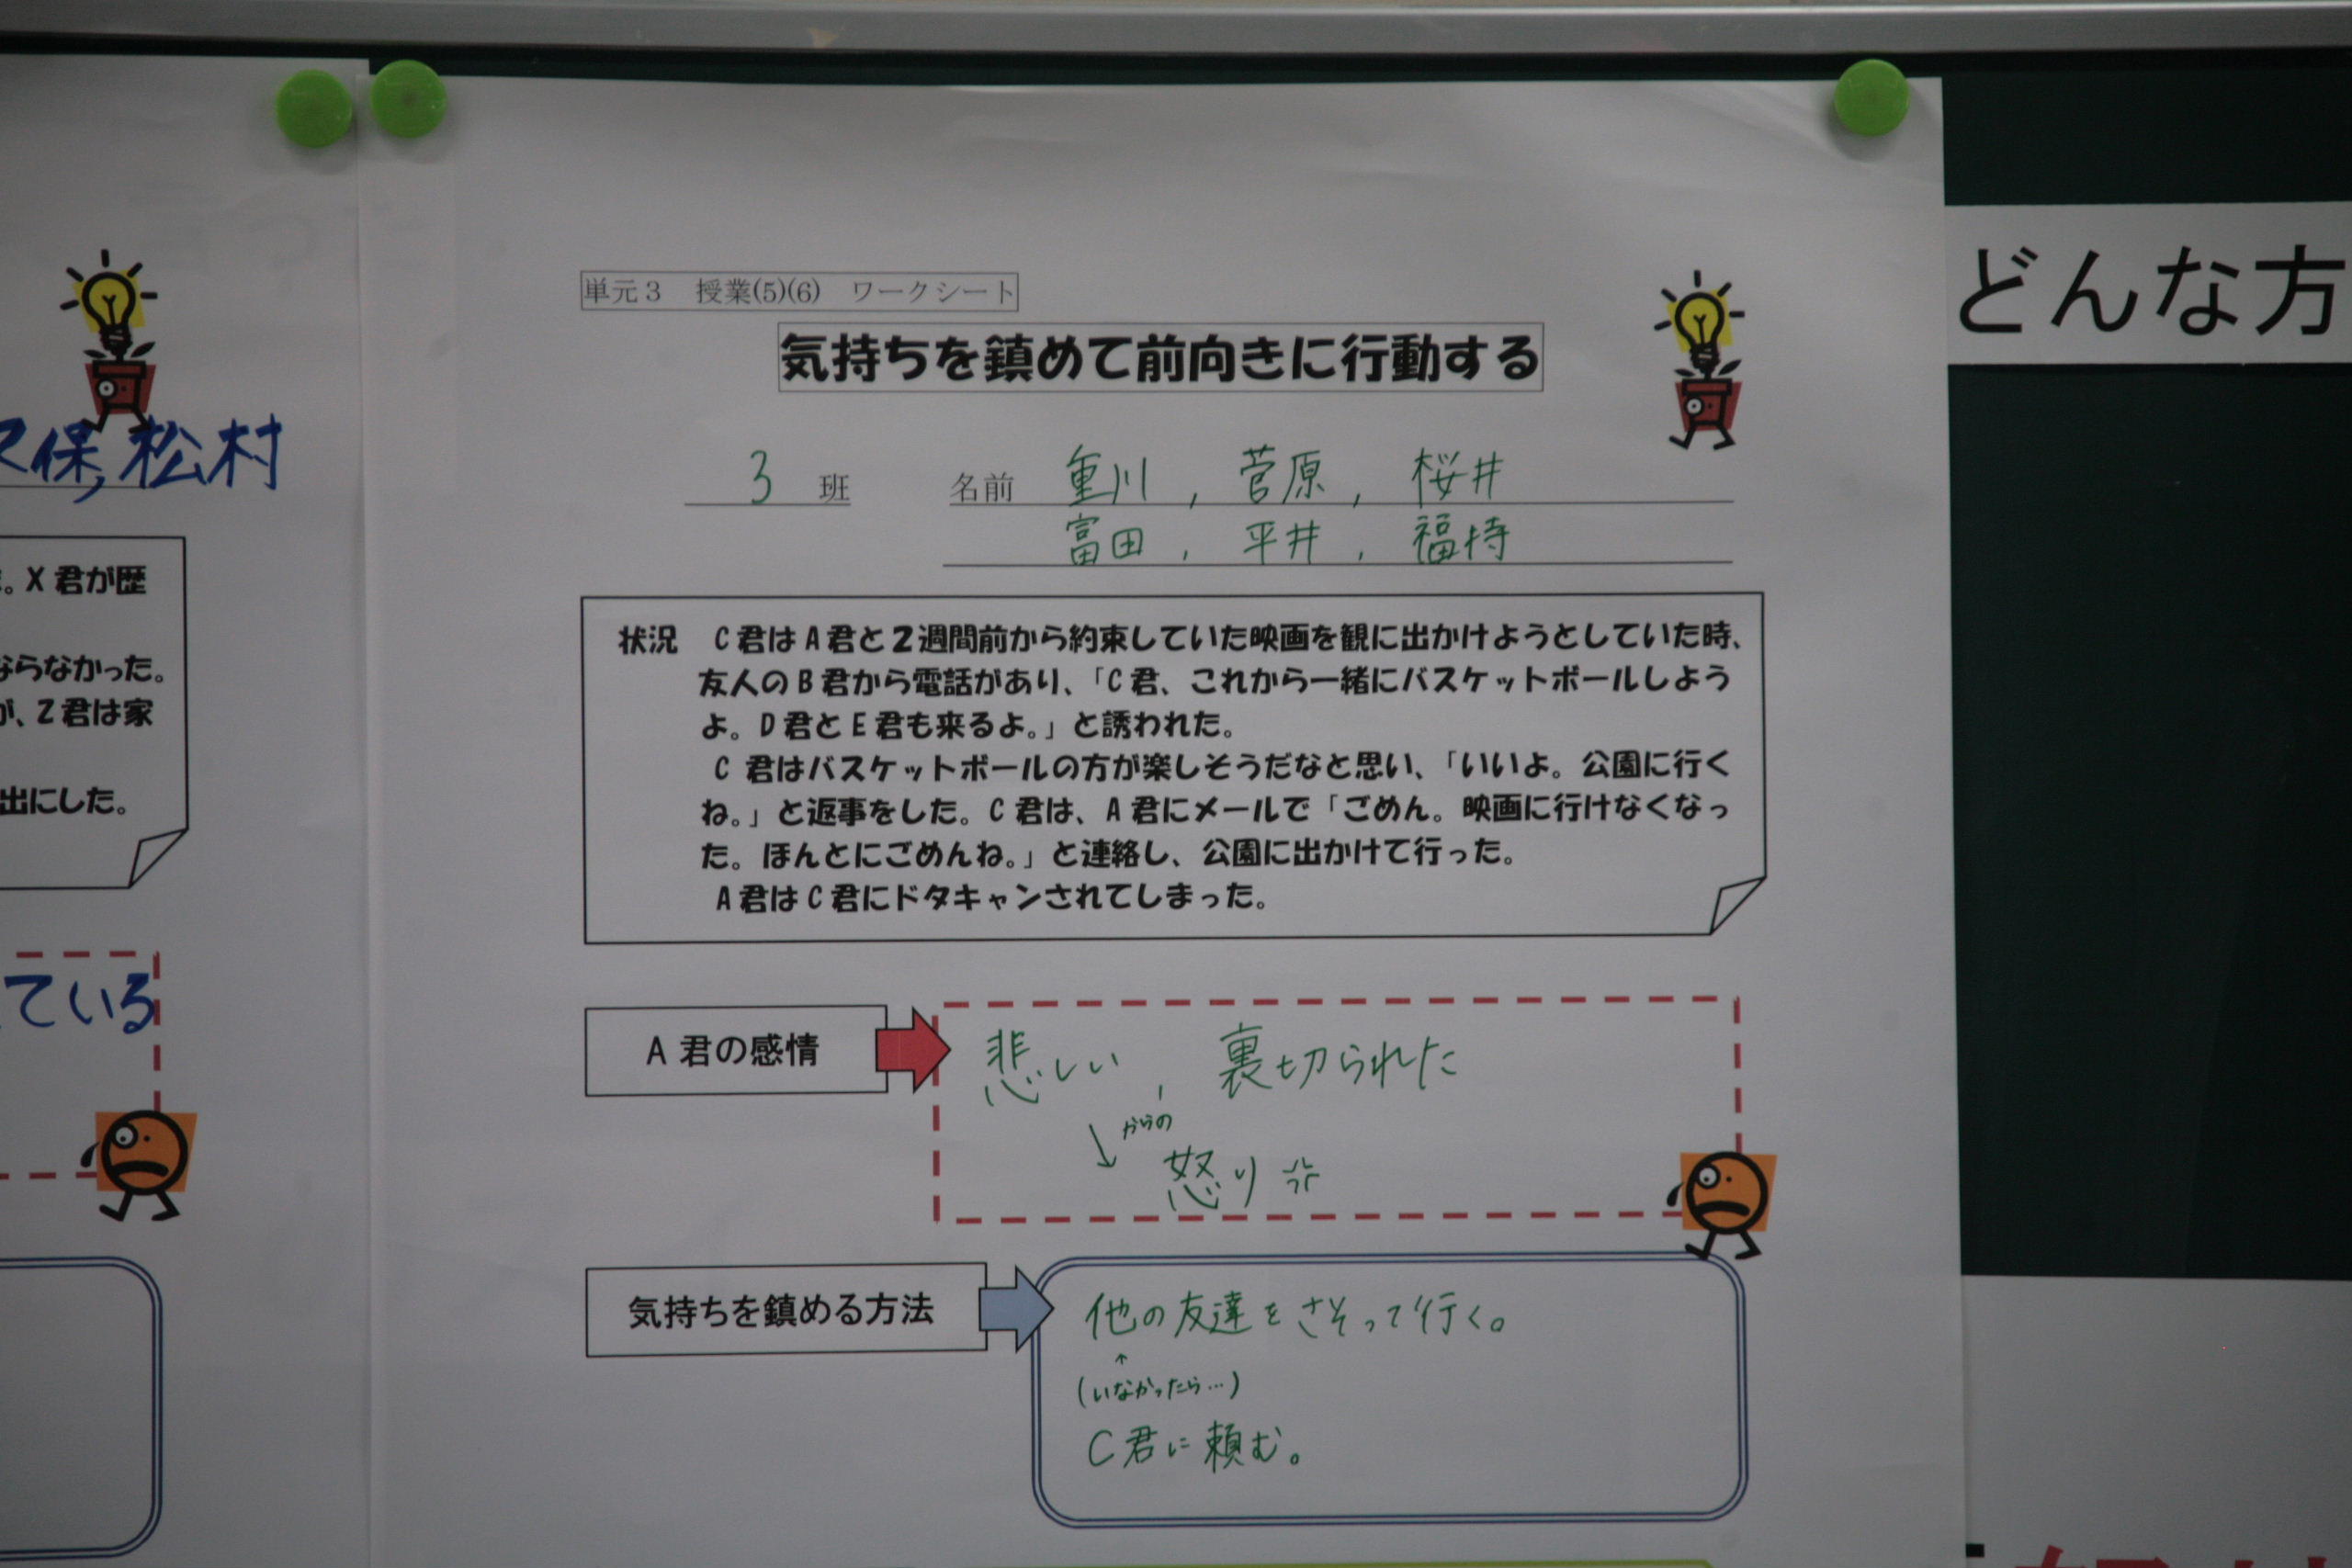 保,松村
。X君が歴
ならなかった。
が、Z君は家
出にした。
ている
単元3 授業(5)(6) ワークシート
気持ちを鎮めて前向きに行動する
3 班 名前 重川, 菅原, 桜井
富田, 平井, 福持
状況 C君はA君と2週間前から約束していた映画を観に出かけようとしていた時、
友人のB君から電話があり、「C君、これから一緒にバスケットボールしよう
よ。D君とE君も来るよ。」と誘われた。
C君はバスケットボールの方が楽しそうだなと思い、「いいよ。公園に行く
ね。」と返事をした。C君は、A君にメールで「ごめん。映画に行けなくなっ
た。ほんとにごめんね。」と連絡し、公園に出かけて行った。
A君はC君にドタキャンされてしまった。
A君の感情
悲しい, 裏切られた
↓ からの
怒り
気持ちを鎮める方法
他の友達をさそって行く。
↑
(いなかったら…)
C君に頼む。
どんな方